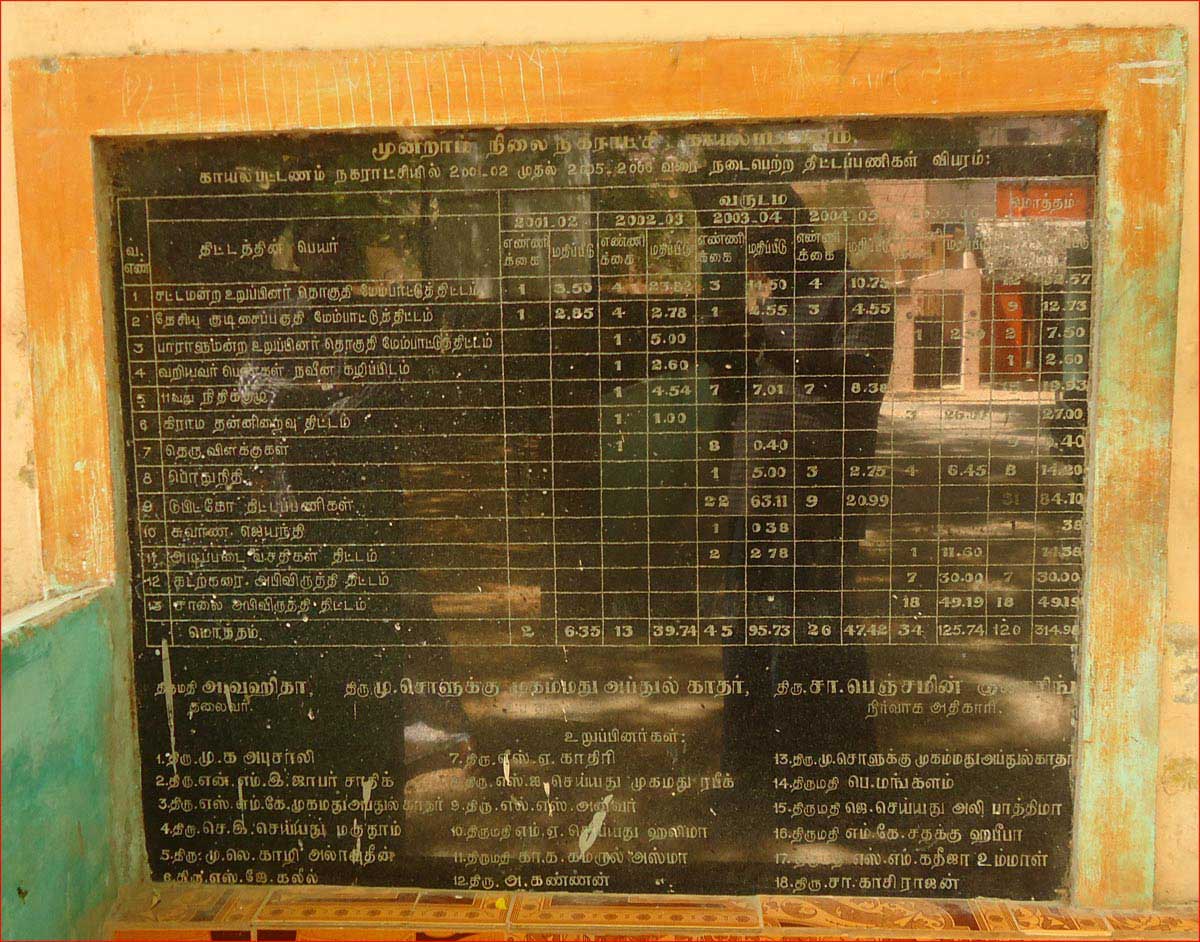 மூன்றாம் நிலை நகராட்சி, காயல்பட்டணம்.
காயல்பட்டணம் நகராட்சியில் 2001.02 முதல் 2005.2006 வரை நடைபெற்ற திட்டப்பணிகள் விபரம்:
வருடம்
2001.02 2002.03 2003.04 2004.05 2005.06 மொத்தம்
வ. எண் திட்டத்தின் பெயர் எண்ணிக்கை மதிப்பீடு எண்ணிக்கை மதிப்பீடு எண்ணிக்கை மதிப்பீடு எண்ணிக்கை மதிப்பீடு
1 சட்டமன்ற உறுப்பினர் தொகுதி மேம்பாட்டுத்திட்டம் 1 3.50 4 23.82 3 4 10.75
2 தேசிய குடிசைப்பகுதி மேம்பாட்டுத்திட்டம் 1 2.85 4 2.78 1 2.55 3 4.55 9 12.73
3 பாராளுமன்ற உறுப்பினர் தொகுதி மேம்பாட்டுத்திட்டம் 1 5.00 1 2.50 2 7.50
4 வறியவர் பெண்கள் நவீன கழிப்பிடம் 1 2.60 1 2.60
5 11வது நிதிக்குழு 1 4.54 7 7.01 7 8.38 15 19.93
6 கிராம தன்னிறைவு திட்டம் 1 1.00 3 27.00
7 தெருவிளக்குகள் 1 8 0.40
8 பொதுநிதி 1 5.00 3 2.75 4 6.45 8 14.20
9 டுபிட்கோ திட்டப்பணிகள் 22 63.11 9 20.99 31 84.10
10 சுவர்ண ஜெயந்தி 1 0.38
11 அடிப்படை வசதிகள் திட்டம் 2 2.78 1 11.60
12 கடற்கரை அபிவிருத்தி திட்டம் 7 30.00 7 30.00
13 சாலை அபிவிருத்தி திட்டம் 18 49.19 18 49.19
மொத்தம் 2 6.35 13 39.74 45 95.73 26 47.42 34 125.74 120 314.98
திருமதி அ.வஹிதா, திரு.மு.சொளுக்கு முகம்மது அப்துல் காதர், திரு. சா.பெஞ்சமின்
தலைவர். நிர்வாக அதிகாரி.
உறுப்பினர்கள்:
1.திரு.மு.க அபுசாலி 7.திரு.வீ.எஸ்.ஏ. காதிரி 13.திரு.மு.சொளுக்கு முகம்மது அப்துல்காதர்
2.திரு.என்.எம்.இ.ஜாபர் சாதிக் 8.திரு.எஸ்.ஐ.செய்யது முகமது ரபீக் 14.திருமதி பெ.மங்களம்
3.திரு.எஸ்.எம்.கே.முகமது அப்துல் காதர் 9.திரு.எஸ்.எஸ்.அன்வர் 15.திருமதி ஜெ.செய்யது அலி பாத்திமா
4.திரு.செ.இ.செய்யது மகதூம் 10.திருமதி எம்.ஏ.செய்யது ஹலிமா 16.திருமதி எம்.கே.சதக்கு ஹபீபா
5.திரு.மு.லெ.காழி அலாவுதீன் 11.திருமதி கா.க.கமருல் அஸ்மா 17.திருமதி எஸ்.எம்.கதீஜா உம்மாள்
6.திரு.எஸ்.ஜே.கலீல் 12.திரு. அ.கண்ணன் 18.திரு.சா.காசி ராஜன்